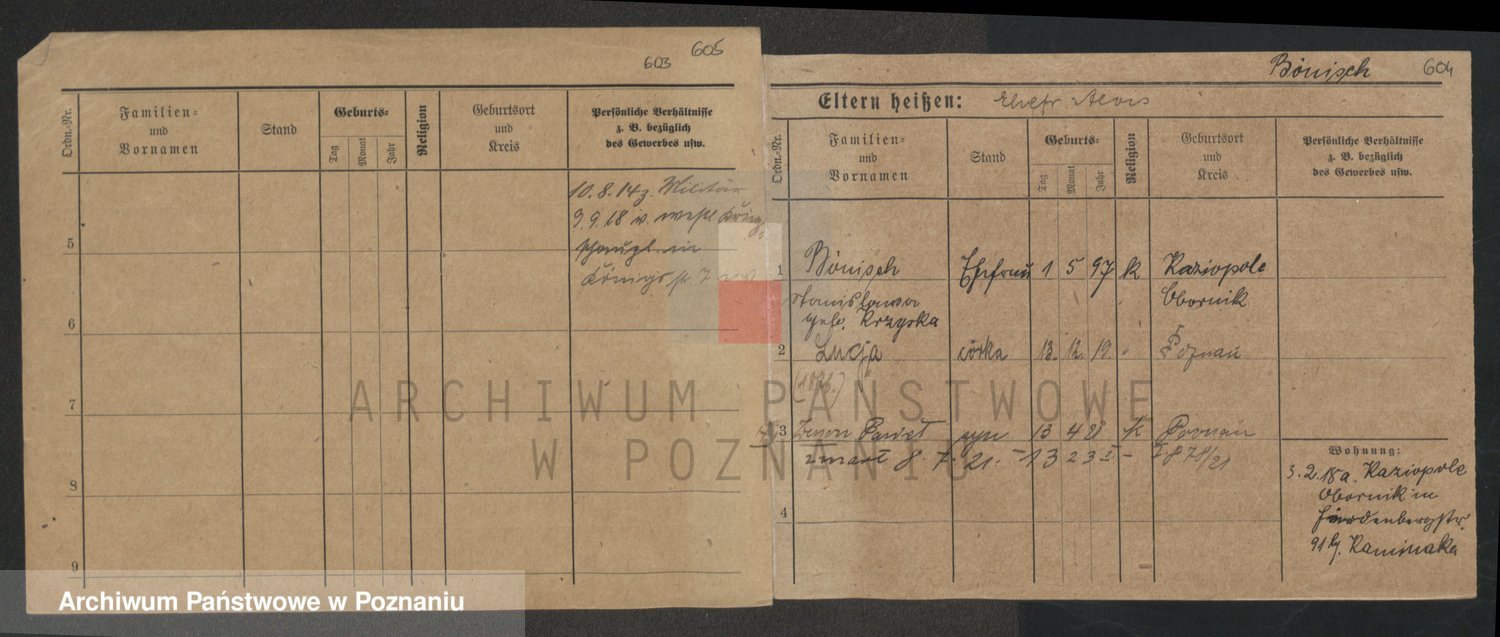 603 605
Ordn.-Nr.
Familien-
und
Vornamen
Stand
Geburts-
Tag Monat Jahr
Religion
Geburtsort
und
Kreis
Persönliche Verhältnisse
z. B. bezüglich
des Gewerbes usw.
10.8.14 z. Militär
9.9.18 v. westl.
in
5
6
7
8
9
Bönisch 604
Eltern heißen: Ehefr. Alois
Ordn.-Nr.
Familien-
und
Vornamen
Stand
Geburts-
Tag Monat Jahr
Religion
Geburtsort
und
Kreis
Persönliche Verhältnisse
z. B. bezüglich
des Gewerbes usw.
1 Bönisch Ehefrau 1 5 97 k Kaziopole
Stanislawa Obornik
geb. Krzyska
2 Lucja córka 13. 12 19 " Poznań
3 Zenon Paweł syn 13 4 21 k Poznań
zmarł 8. 7. 21. I 878/21
4
Wohnung:
3.2.18 a. Kaziopole
Obornik in
91 b/.
ARCHIWUM PAŃSTWOWE
W POZNANIU
Archiwum Państwowe w Poznaniu